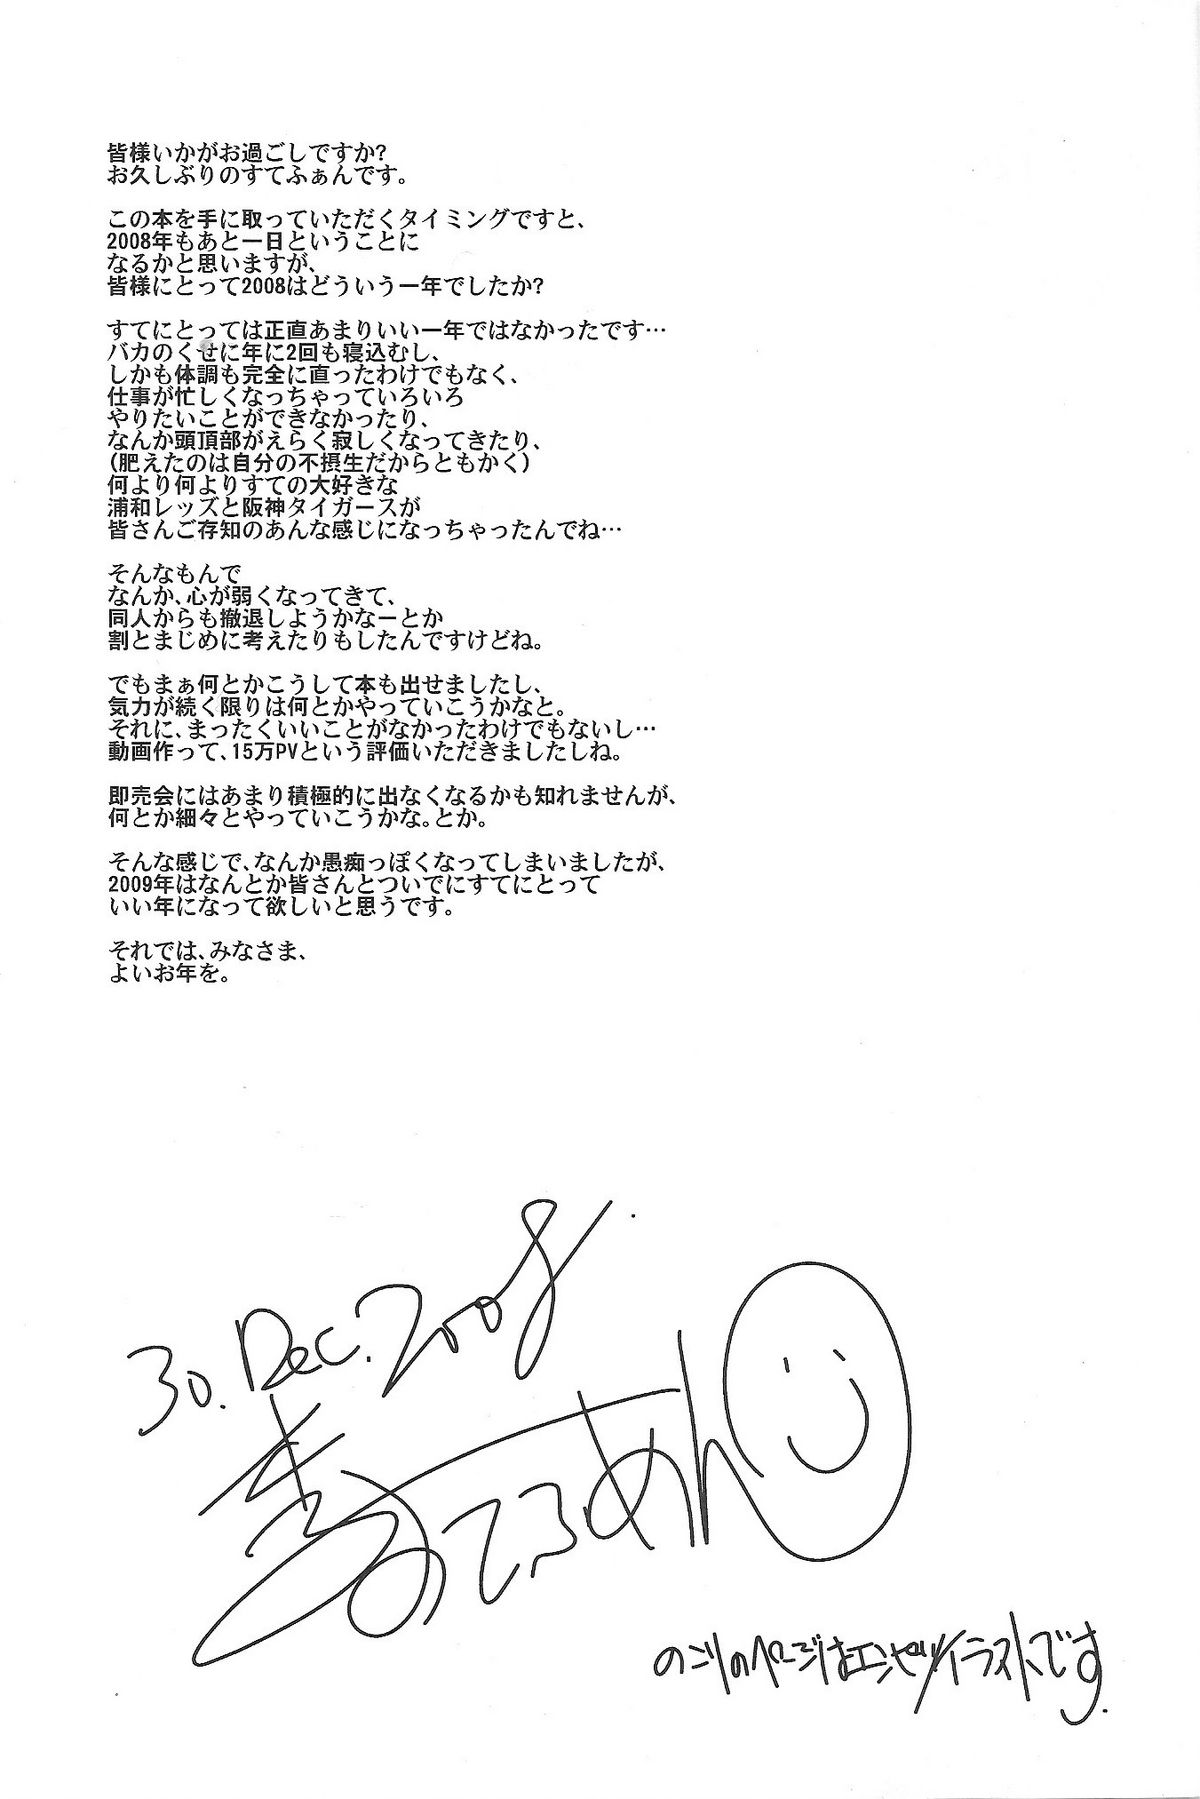 皆様いかがお過ごしですか?
お久しぶりのすてふぁんです。
この本を手に取っていただくタイミングですと、
2008年もあと一日ということに
なるかと思いますが、
皆様にとって2008はどういう一年でしたか?
すてにとっては正直あまりいい一年ではなかったです…
バカのくせに年に2回も寝込むし、
しかも体調も完全に直ったわけでもなく、
仕事が忙しくなっちゃっていろいろ
やりたいことができなかったり、
なんか頭頂部がえらく寂しくなってきたり、
(肥えたのは自分の不摂生だからともかく)
何より何よりすての大好きな
浦和レッズと阪神タイガースが
皆さんご存知のあんな感じになっちゃったんでね…
そんなもんで
なんか、心が弱くなってきて、
同人からも撤退しようかなーとか
割とまじめに考えたりもしたんですけどね。
でもまぁ何とかこうして本も出せましたし、
気力が続く限りは何とかやっていこうかなと。
それに、まったくいいことがなかったわけでもないし…
動画作って、15万PVという評価いただきましたしね。
即売会にはあまり積極的に出なくなるかも知れませんが、
何とか細々とやっていこうかな。とか。
そんな感じで、なんか愚痴っぽくなってしまいましたが、
2009年はなんとか皆さんとついでにすてにとって
いい年になって欲しいと思うです。
それでは、みなさま、
よいお年を。
30.Dec.2008.
すてふぁん
のこりのページはエンピツイラストです.